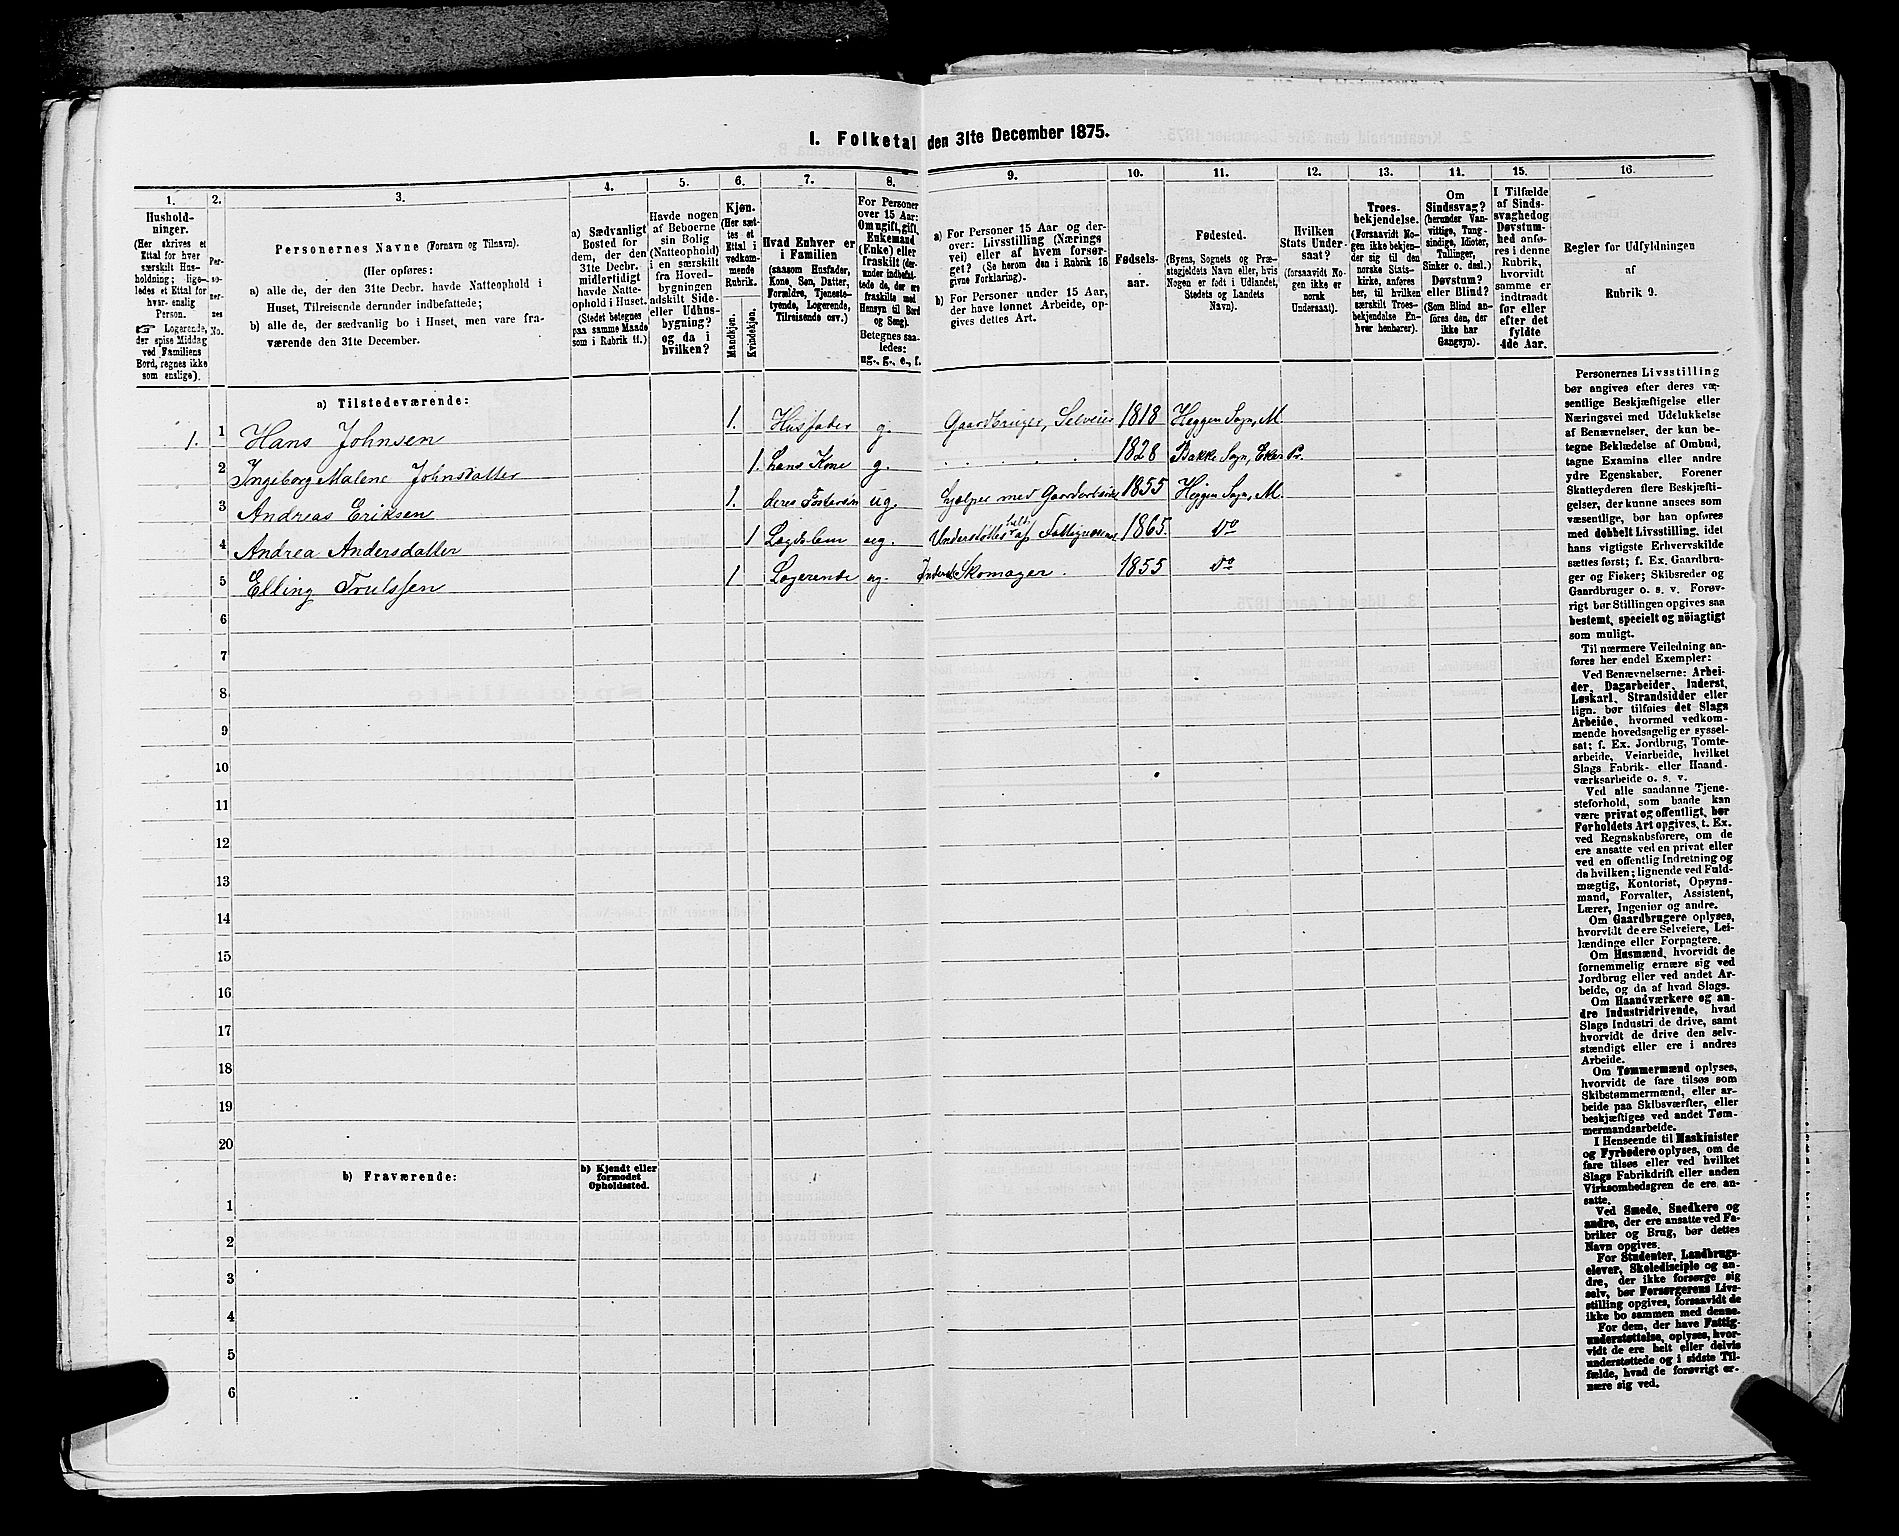 I. Folketal den 31te December 1875.
1.
Hushold-
ninger.
(Her skrives et
Ettal for hver
særskilt Hus-
holdning; lige-
ledes et Ettal for
hver enslig
Person.
☞ Logerende,
der spise Middag
ved Familiens
Bord, regnes ikke
som enslige).
2.
Per-
so-
ner-
nes
No.
3.
Personernes Navne (Fornavn og Tilnavn).
(Her opføres:
a) alle de, der den 31te Decbr. havde Natteophold i
Huset, Tilreisende derunder indbefattede;
b) alle de, der sædvanlig bo i Huset, men vare fra-
værende den 31te December.
4.
a) Sædvanligt
Bosted for
dem, der den
31te Decbr.
midlertidigt
havde Natte-
ophold i Huset.
(Stedet betegnes
paa samme Maade
som i Rubrik 11.)
5.
Havde nogen
af Beboerne
sin Bolig
(Natteophold)
i en særskilt
fra Hoved-
bygningen
adskilt Side-
eller Udhus-
bygning?
og da i
hvilken?
6.
Kjøn.
(Her sæt-
tes et
Ettal i
vedkom-
mende
Rubrik.
Mandkjøn.
Kvindekjøn.
7.
Hvad Enhver er
i Familien
(saasom Husfader,
Kone, Søn, Datter,
Forældre, Tjeneste-
tyende, Logerende,
Tilreisende osv.)
8.
For Personer
over 15 Aar:
Om ugift, gift,
Enkemand
(Enke) eller
fraskilt (der-
under indbefat-
tede de, der ere
fraskilte med
Hensyn til Bord
og Seng).
Betegnes saa-
ledes:
ug., g., e., f.
9.
a) For Personer 15 Aar og der-
over: Livsstilling (Nærings
vei) eller af hvem forsør-
get? (Se herom den i Rubrik 16
givne Forklaring).
b) For Personer under 15 Aar,
der have lønnet Arbeide, op-
gives dettes Art.
10.
Fødsels-
aar.
11.
Fødested.
(Byens, Sognets og Præ-
stegjeldets Navn eller, hvis
Nogen er født i Udlandet,
Stedets og Landets
Navn).
12.
Hvilken
Stats Under-
saat?
(forsaavidt No-
gen ikke er
norsk
Undersaat).
13.
Troes-
bekjendelse.
(Forsaavidt No-
gen ikke bekjen-
der sig til den
norske Stats-
kirke, anføres
her, til hvilken
særskilt Troes-
bekjendelse En-
hver henhører).
14.
Om
Sindssvag?
(herunder Van-
vittige, Tung-
sindige, Idioter,
Tullinger,
Sinker o. desl.)
Døvstum?
eller Blind?
(Som Blind an-
føres den, der
ikke har
Gangsyn).
15.
I Tilfælde
af Sinds-
svaghed og
Døvstum-
hed anfø-
res i denne
Rubrik,
hvorvidt
samme er
indtraadt
før eller
efter det
fyldte
4de Aar.
16.
Regler for Udfyldningen
af
Rubrik 9.
a) Tilstedeværende:
1. 1 Hans Johnsen 1. Husfader g. Gaardbruger, Selveier 1818 Heggen Sogn, M.
2 Ingeborg Malene Johnsdatter 1. hans Kone g. 1828 Bakke Sogn, Eker Pr.
3 Andreas Eriksen 1. deres Fostersøn ug. hjælper med Gaardarbeide 1855 Heggen Sogn, M.
4 Andrea Andersdatter 1 Lægdslem ug. Understøttes af Fattigvæsenet 1865. do
5 Elling Trulssen 1 Logerende ug. Inderst Skomager. 1855 do
6
7
8
9
10
11
12
13
14
15
16
17
18
19
20
b) Fraværende:
b) Kjendt eller
formodet
Opholdssted.
1
2
3
4
5
6
Personernes Livsstilling
bør angives efter deres væ-
sentlige Beskjæftigelse eller
Næringsvei med Udelukkelse
af Benævnelser, der kun be-
tegne Beklædelse af Ombud,
tagne Examina eller andre
ydre Egenskaber. Forener
Skatteyderen flere Beskjæfti-
gelser, der kunne ansees som
væsentlige, bør han opføres
med dobbelt Livsstilling, idet
hans vigtigste Erhvervskilde
sættes først; f. Ex. Gaardbru-
ger og Fisker; Skibsreder og
Gaardbruger o. s. v. Forøv-
rigt bør Stillingen opgives saa
bestemt, specielt og nöiagtigt
som muligt.
Til nærmere Veiledning an-
føres her endel Exempler:
Ved Benævnelserne: Arbei-
der, Dagarbeider, Inderst,
Løskarl, Strandsidder eller
lign. bør tilføies det Slags
Arbeide, hvormed vedkom-
mende hovedsagelig er syssel-
sat: f. Ex. Jordbrug, Tomte-
arbeide, Veiarbeide, hvilket
Slags Fabrik- eller Haand-
værksarbeide o. s. v.
Ved alle saadanne Tjene-
steforhold, som baade kan
være privat og offentligt, bør
Forholdets Art opgives, t. Ex.
ved Regnskabsførere, om de
ere ansatte ved en privat eller
ved en offentlig Indretning og
da hvilken; lignende ved Fuld-
mægtig, Kontorist, Opsyns-
mand, Forvalter, Assistent,
Lærer, Ingeniør og andre.
Om Gaardbrugere oplyses,
hvorvidt de ere Selveiere, Lei-
lændinge eller Forpagtere.
Om Husmænd, hvorvidt de
fornemmelig ernære sig ved
Jordbrug eller ved andet Ar-
beide, og da af hvad Slags.
Om Haandværkere og an-
dre Industridrivende, hvad
Slags Industri de drive, samt
hvorvidt de drive den selv-
stændigt eller ere i andres
Arbeide.
Om Tømmermænd oplyses,
hvorvidt de fare tilsøs som
Skibstømmermænd, eller ar-
beide paa Skibsværfter, eller
beskjæftiges ved andet Tøm-
mermandsarbeide.
I Henseende til Maskinister
og Fyrbødere oplyses, om de
fare tilsøs eller ved hvilket
Slags Fabrikdrift eller anden
Virksomhedsgren de ere an-
satte.
Ved Smede, Snedkere og
andre, der ere ansatte ved Fa-
briker og Brug, bør dettes
Navn opgives.
For Studenter, Landbrugs-
elever, Skoledisciple og an-
dre, der ikke forsørge sig
selv, bør Forsørgerens Liv-
stilling opgives, forsaavidt de
ikke bo sammen med denne.
For dem, der have Fattig-
understøttelse, oplyses, hvor-
vidt de ere helt eller delvis
understøttede og i sidste Til-
fælde, hvad de forøvrigt er-
nære sig ved.